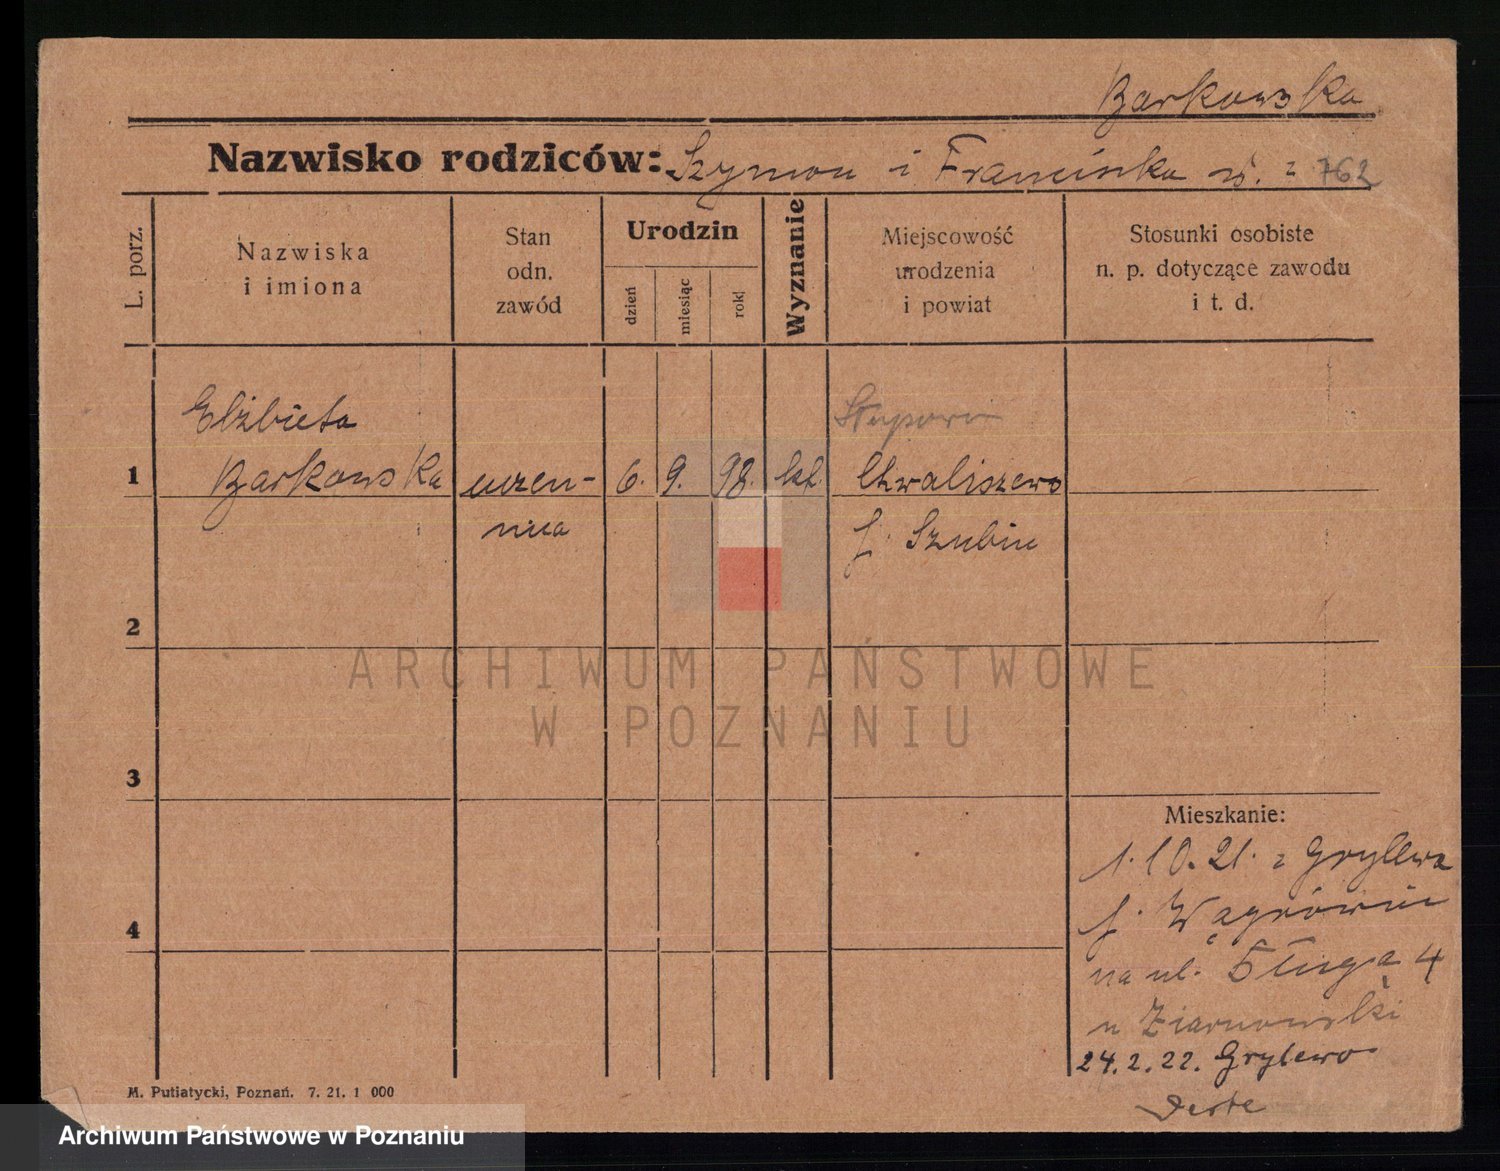 Barkowska
Nazwisko rodziców: Szymon i Franciszka
762
L. porz.
Nazwiska
i imiona
Stan
odn.
zawód
Urodzin
dzień
miesiąc
rok
Wyznanie
Miejscowość
urodzenia
i powiat
Stosunki osobiste
n. p. dotyczące zawodu
i t. d.
Elżbieta
Stupowo
1 Barkowska uczen- 6. 9. 98. kt. Chwaliszewo
nica
p. Szubin
2
3
4
Mieszkanie:
1.10.21. z Grylewa
p. Wągrówiec
na ul. Długą 4
u Ziarnowski
24.2.22. Grylewo
M. Putiatycki, Poznań. 7. 21. 1 000
ARCHIWUM PAŃSTWOWE
W POZNANIU
Archiwum Państwowe w Poznaniu